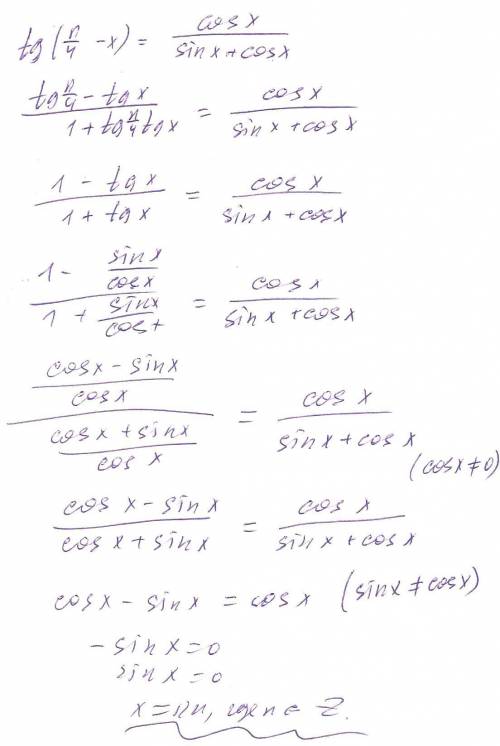 tg(π/4 - x) = cos x / (sin x + cos x)
(tg π/4 - tg x) / (1 + tg π/4 tg x) = cos x / (sin x + cos x)
(1 - tg x) / (1 + tg x) = cos x / (sin x + cos x)
(1 - sin x / cos x) / (1 + sin x / cos x) = cos x / (sin x + cos x)
((cos x - sin x) / cos x) / ((cos x + sin x) / cos x) = cos x / (sin x + cos x)
(cos x ≠ 0)
(cos x - sin x) / (cos x + sin x) = cos x / (sin x + cos x)
cos x - sin x = cos x (sin x ≠ cos x)
- sin x = 0
sin x = 0
x = πn, где n ∈ Z.